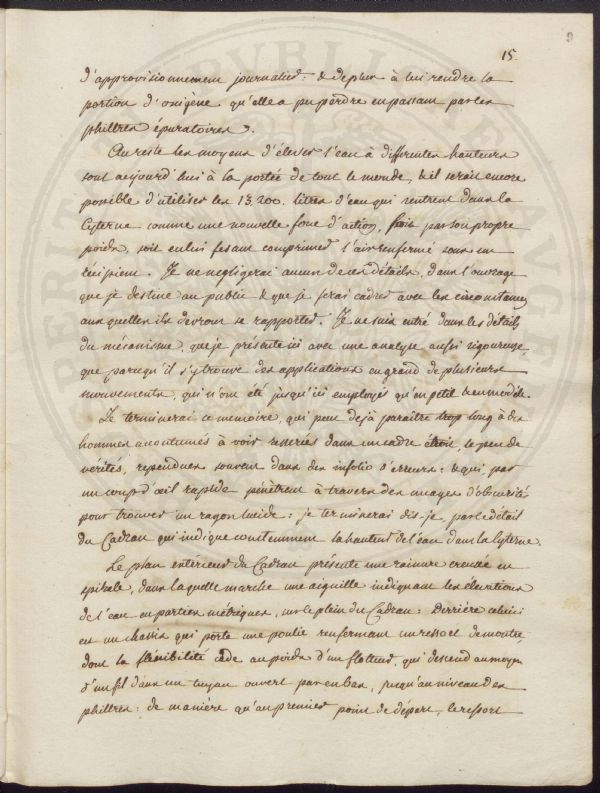 15.
d'approvisionnement journalier: & de plus à lui rendre la
portion d'oxigène qu'elle a pu perdre en passant par les
philtres épuratoires.
Au reste les moyens d'élever l'eau à differentes hauteurs
sont aujourd'hui à la portée de tout le monde, & il serait encore
possible d'utiliser les 13,200. litres d'eau qui rentrent dans la
Cyterne comme une nouvelle force d'action, soit par son propre
poids, soit en lui fesant comprimer l'air renfermé sous un
récipient. Je ne negligerai aucun de ces détails, dans l'ouvrage
que je destine au public & que je ferai cadrer avec les circonstances
auxquelles ils devront se rapporter. Je ne suis entré dans les détails
du mécanisme, que je présente ici avec une analyse aussi rigoureuse,
que parcequ'il s'y trouve des applications en grand de plusieurs
mouvements, qui n'ont été jusqu'ici employés qu'en petit & en modèle.
Je terminerai ce mémoire, qui peut déjà paraître trop long à des
hommes accoutumés à voir resserrés dans un cadre étroit, le peu de
vérités, rependues souvent dans des infolio d'erreurs: & qui par
un coup d'œil rapide pénètrent à travers des nuages d'obscurité
pour trouver un rayon lucide: je terminerai dis-je, par le détail
du Cadran qui indique constamment la hauteur de l'eau dans la Cyterne.
Le plan extérieur du Cadran présente une rainure creusée en
spirale, dans laquelle marche une aiguille indiquant les élévations
de l'eau en parties métriques, sur le plein du Cadran: derrière celui ci
est un chassis qui porte une poulie renfermant un ressort de montre
dont la fléxibilité cède au poids d'un flotteur, qui descend au moyen
d'un fil dans un tuyau ouvert par en bas, jusqu'au niveau des
philtres: de manière qu'au premier point de départ, le ressort